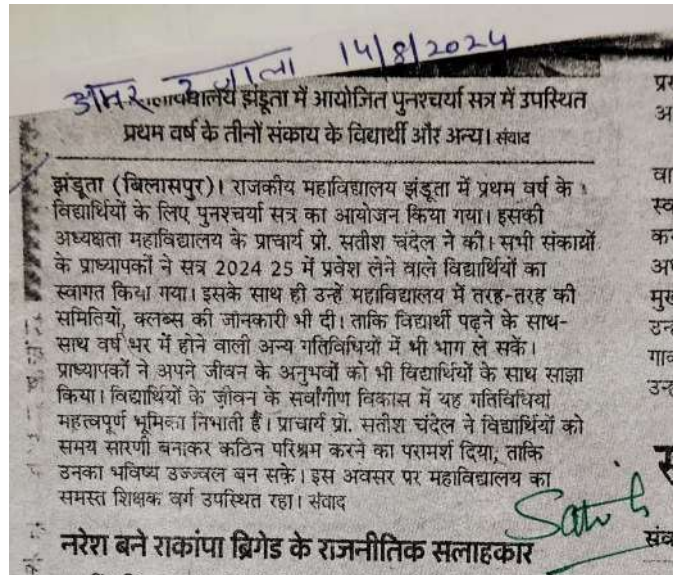 अमर उजाला 14/8/2024
झंडूता में आयोजित पुनश्चर्या सत्र में उपस्थित
प्रथम वर्ष के तीनों संकाय के विद्यार्थी और अन्य। संवाद
झंडूता (बिलासपुर)। राजकीय महाविद्यालय झंडूता में प्रथम वर्ष के
विद्यार्थियों के लिए पुनश्चर्या सत्र का आयोजन किया गया। इसकी
अध्यक्षता महाविद्यालय के प्राचार्य प्रो. सतीश चंदेल ने की। सभी संकायों
के प्राध्यापकों ने सत्र 2024 25 में प्रवेश लेने वाले विद्यार्थियों का
स्वागत किया गया। इसके साथ ही उन्हें महाविद्यालय में तरह-तरह की
समितियों, क्लब्स की जानकारी भी दी। ताकि विद्यार्थी पढ़ने के साथ-
साथ वर्ष भर में होने वाली अन्य गतिविधियों में भी भाग ले सकें।
प्राध्यापकों ने अपने जीवन के अनुभवों को भी विद्यार्थियों के साथ साझा
किया। विद्यार्थियों के जीवन के सर्वांगीण विकास में यह गतिविधियां
महत्वपूर्ण भूमिका निभाती हैं। प्राचार्य प्रो. सतीश चंदेल ने विद्यार्थियों को
समय सारणी बनाकर कठिन परिश्रम करने का परामर्श दिया, ताकि
उनका भविष्य उज्ज्वल बन सके। इस अवसर पर महाविद्यालय का
समस्त शिक्षक वर्ग उपस्थित रहा। संवाद
नरेश बने राकांपा ब्रिगेड के राजनीतिक सलाहकार